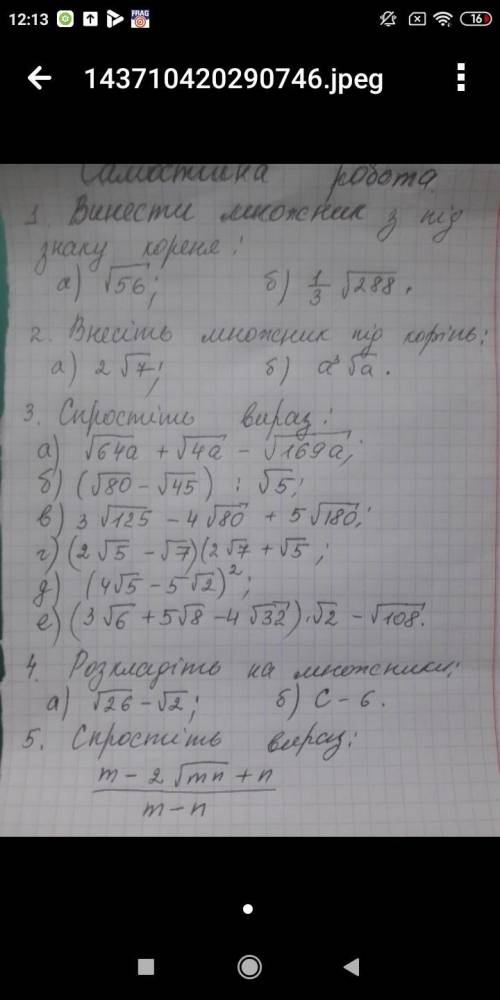 12:13
FRAG
16
143710420290746.jpeg
Самостійна робота
1. Винести множник з під
знаку кореня:
а) √56; б) 1/3 √288.
2. Внесіть множник під корінь:
а) 2√7; б) a³√a.
3. Спростіть вираз:
а) √64a + √4a - √169a;
б) (√80 - √45) : √5;
в) 3√125 - 4√80 + 5√180;
г) (2√5 - √7)(2√7 + √5;
д) (4√5 - 5√2)²;
е) (3√6 + 5√8 - 4√32)·√2 - √108.
4. Розкладіть на множники:
а) √26 - √2; б) c - 6.
5. Спростіть вираз:
m - 2√mn + n
m - n